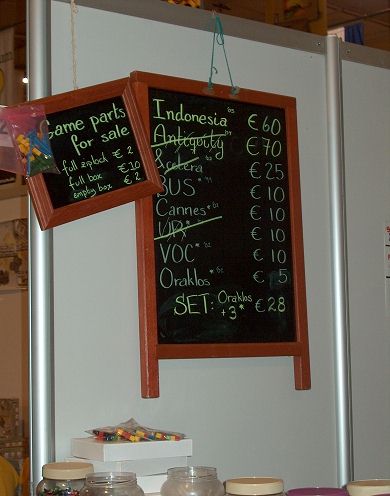 Game parts
for sale
full ziplock € 2
full box € 10
empty box € 2
Indonesia '05 € 60
Antiquity € 70
&cetera € 25
BUS * € 10
Cannes * '02 € 10
UR * € 10
VOC * '02 € 10
Oraklos * '02 € 5
SET: Oraklos
+ 3 * € 28